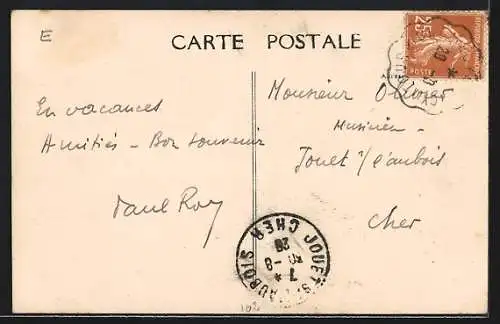 E
CARTE POSTALE
25c
POSTES
En vacances
Amitiés - Bon souvenir
Paul Roy
Monsieur Olivier
Musicien -
Jouet s/l'aubois
Cher
JOUET S. L'AUBOIS
CHER
7 *
-8
30
20
102